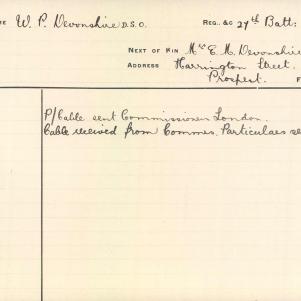 W. P. Devonshire D.S.O. REG. &C 27th Batt:
NEXT OF KIN Mrs E. M. Devonshire
ADDRESS Harrington Street.
Prospect.
P/Cable sent Commissioner London.
Cable received from Commss. Particulars se